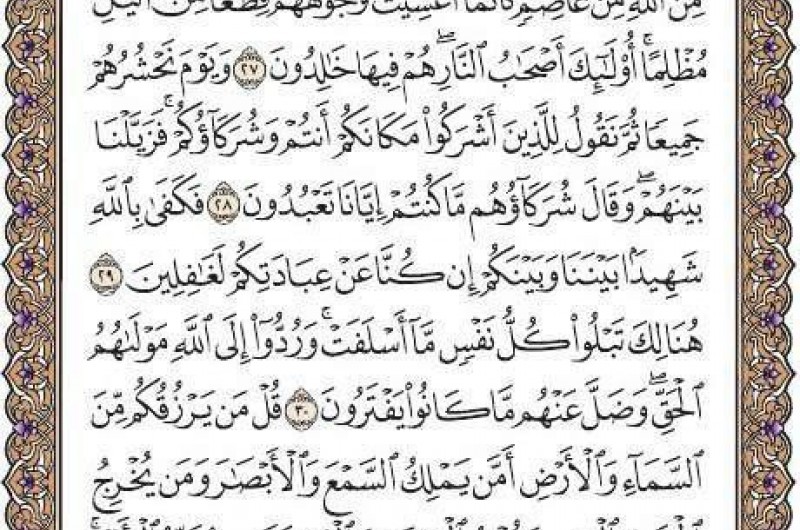 مِّنَ ٱللَّهِ مِنْ عَاصِمٖۖ كَأَنَّمَآ أُغْشِيَتْ وُجُوهُهُمْ قِطَعٗا مِّنَ ٱلَّيْلِ
مُظْلِمًاۚ أُوْلَٰٓئِكَ أَصْحَٰبُ ٱلنَّارِۖ هُمْ فِيهَا خَٰلِدُونَ ٢٧ وَيَوْمَ نَحْشُرُهُمْ
جَمِيعٗا ثُمَّ نَقُولُ لِلَّذِينَ أَشْرَكُواْ مَكَانَكُمْ أَنتُمْ وَشُرَكَآؤُكُمْۚ فَزَيَّلْنَا
بَيْنَهُمْۖ وَقَالَ شُرَكَآؤُهُم مَّا كُنتُمْ إِيَّانَا تَعْبُدُونَ ٢٨ فَكَفَىٰ بِٱللَّهِ
شَهِيدَۢا بَيْنَنَا وَبَيْنَكُمْ إِن كُنَّا عَنْ عِبَادَتِكُمْ لَغَٰفِلِينَ ٢٩
هُنَالِكَ تَبْلُواْ كُلُّ نَفْسٖ مَّآ أَسْلَفَتْۚ وَرُدُّوٓاْ إِلَى ٱللَّهِ مَوْلَىٰهُمُ
ٱلْحَقِّۖ وَضَلَّ عَنْهُم مَّا كَانُواْ يَفْتَرُونَ ٣٠ قُلْ مَن يَرْزُقُكُم مِّنَ
ٱلسَّمَآءِ وَٱلْأَرْضِ أَمَّن يَمْلِكُ ٱلسَّمْعَ وَٱلْأَبْصَٰرَ وَمَن يُخْرِجُ